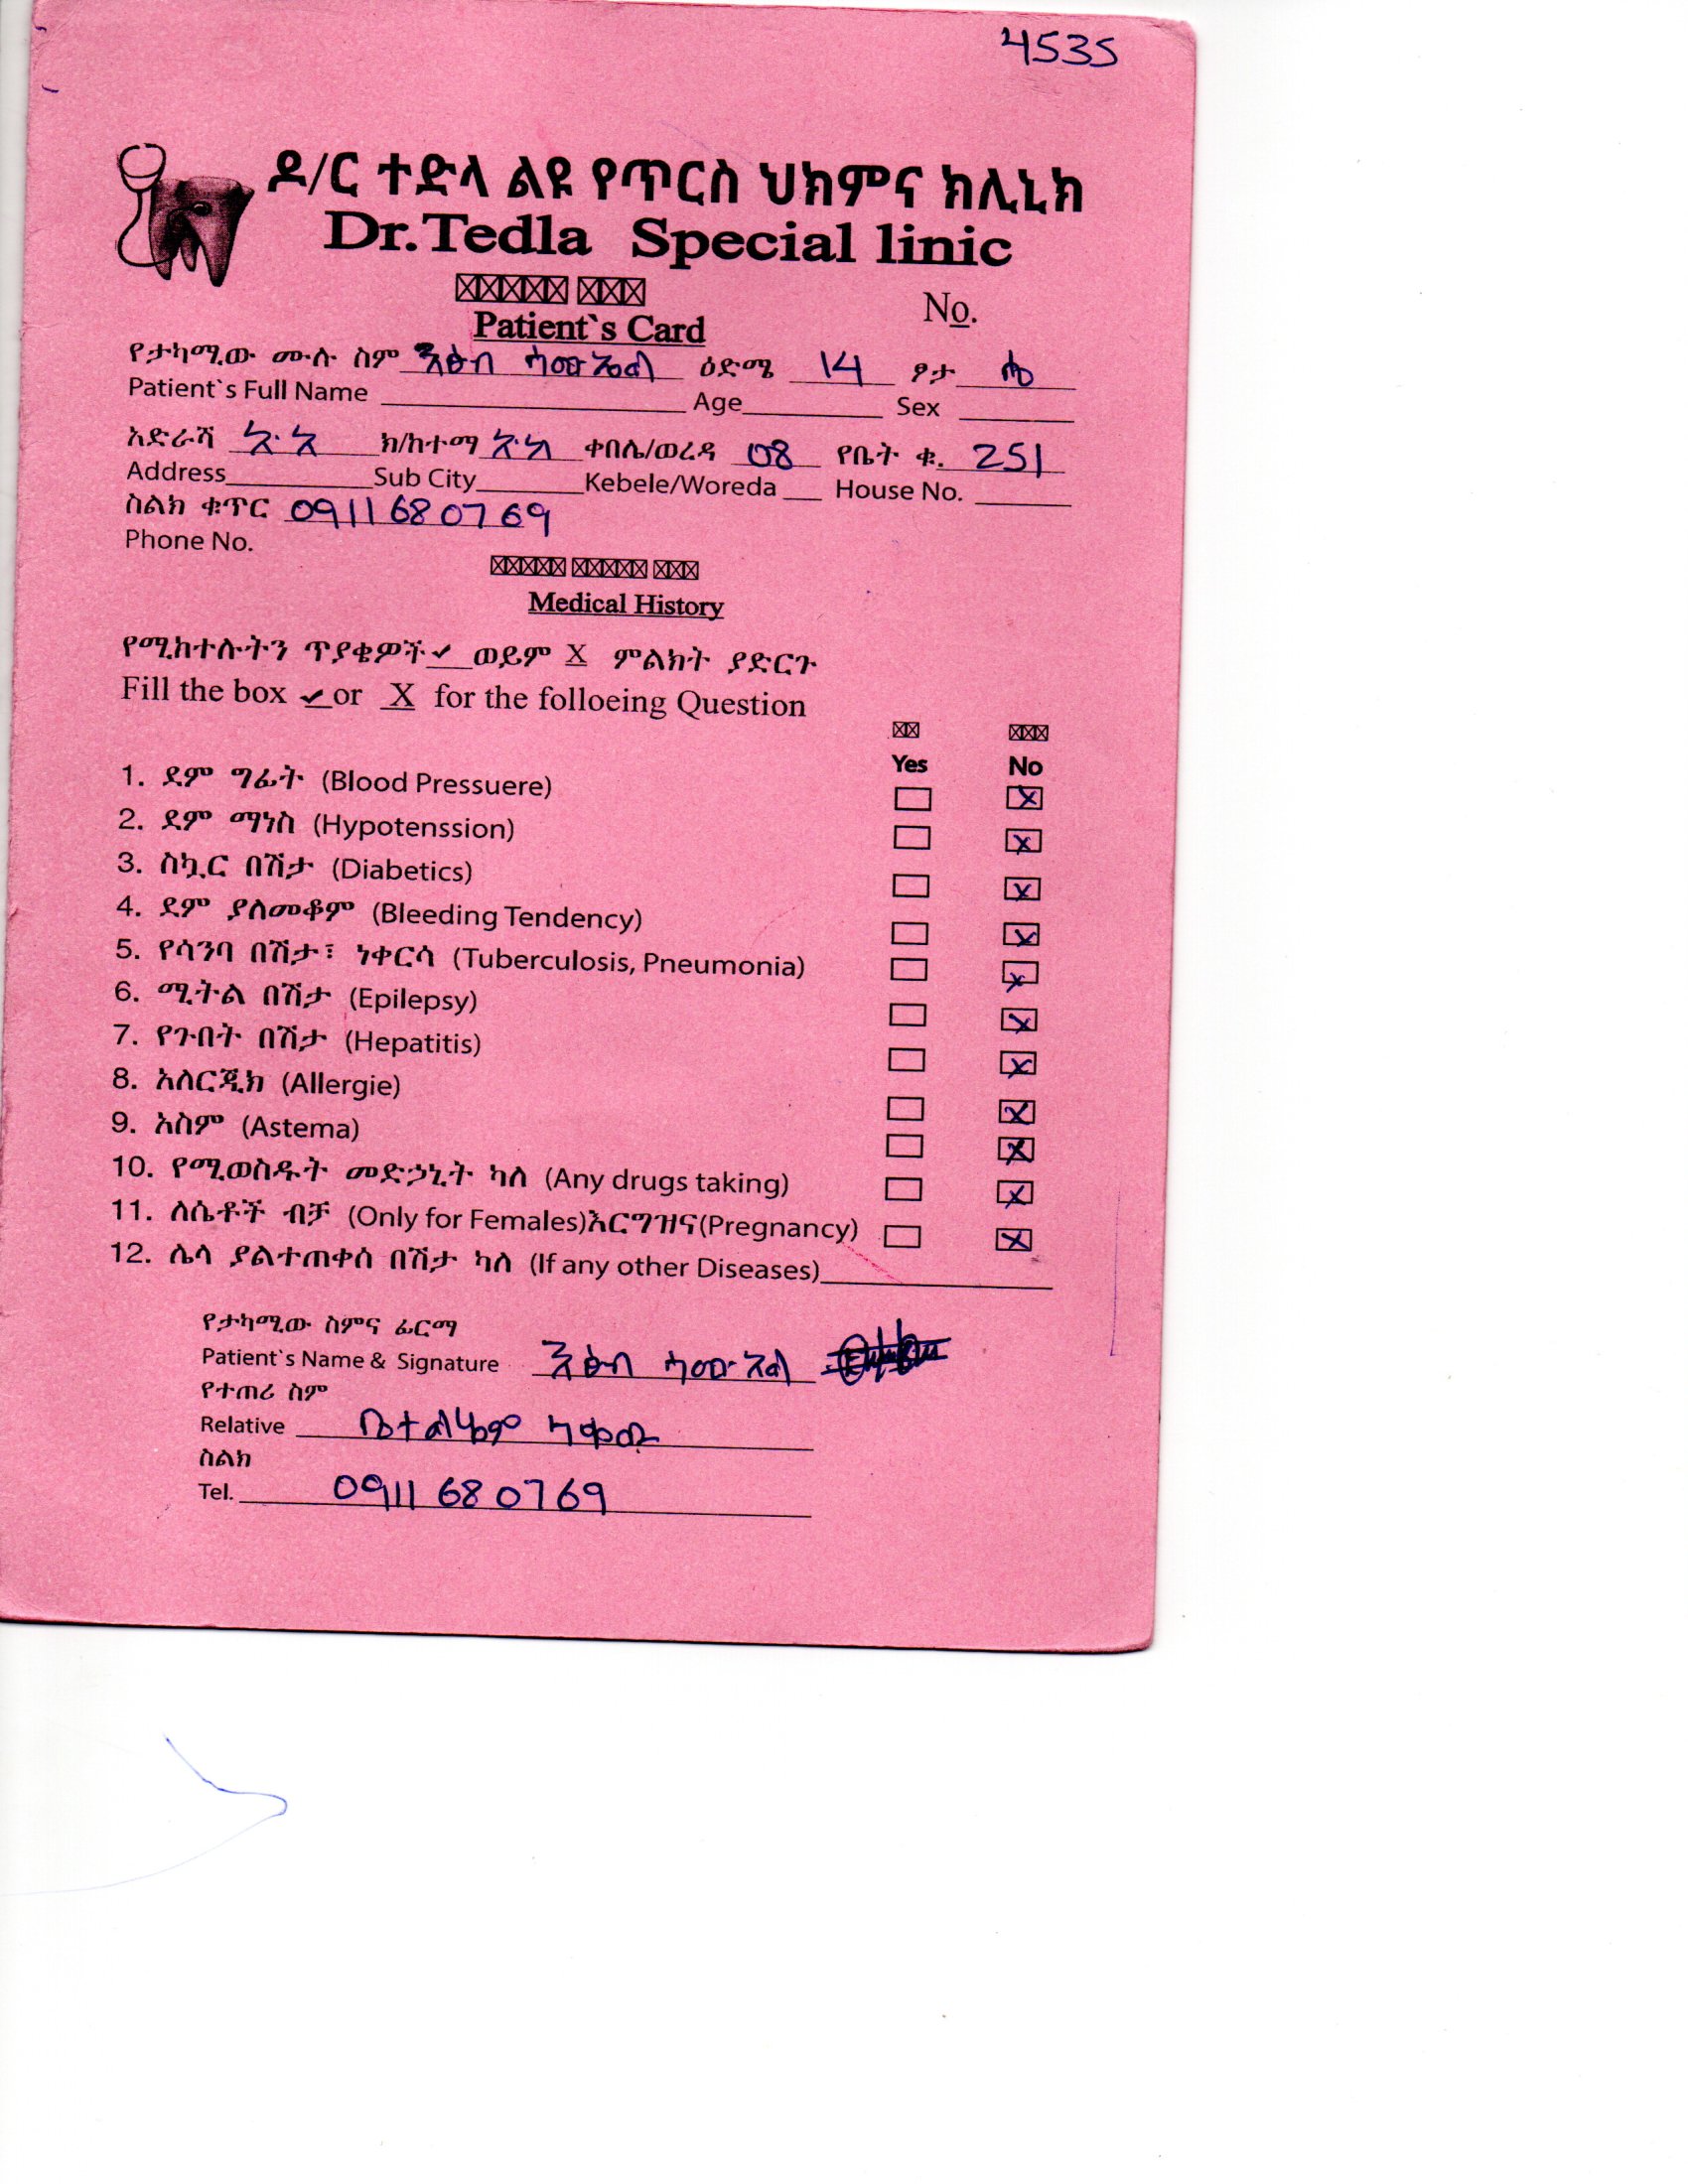 4535
ዶ/ር ተድላ ልዩ የጥርስ ህክምና ክሊኒክ
Dr.Tedla Special linic
No.
Patient`s Card
የታካሚው ሙሉ ስም ሳሙኤል ዕድሜ 14 ፆታ ሴ
Patient`s Full Name Age Sex
አድራሻ አ.አ ክ/ከተማ ቀበሌ/ወረዳ 08 የቤት ቁ. 251
Address Sub City Kebele/Woreda House No.
ስልክ ቁጥር 0911680769
Phone No.
Medical History
የሚከተሉትን ጥያቄዎች ✓ ወይም X ምልክት ያድርጉ
Fill the box ✓ or X for the folloeing Question
Yes No
1. ደም ግፊት (Blood Pressuere) X
2. ደም ማነስ (Hypotenssion) X
3. ስኳር በሽታ (Diabetics) X
4. ደም ያለመቆም (Bleeding Tendency) X
5. የሳንባ በሽታ፣ ነቀርሳ (Tuberculosis, Pneumonia) X
6. ሚትል በሽታ (Epilepsy) X
7. የጉበት በሽታ (Hepatitis) X
8. አለርጂክ (Allergie) X
9. አስም (Astema) X
10. የሚወስዱት መድኃኒት ካለ (Any drugs taking) X
11. ለሴቶች ብቻ (Only for Females)እርግዝና(Pregnancy) X
12. ሌላ ያልተጠቀሰ በሽታ ካለ (If any other Diseases)
የታካሚው ስምና ፊርማ
Patient`s Name & Signature ሳሙኤል
የተጠሪ ስም
Relative ቤተልሄም
ስልክ
Tel. 0911680769